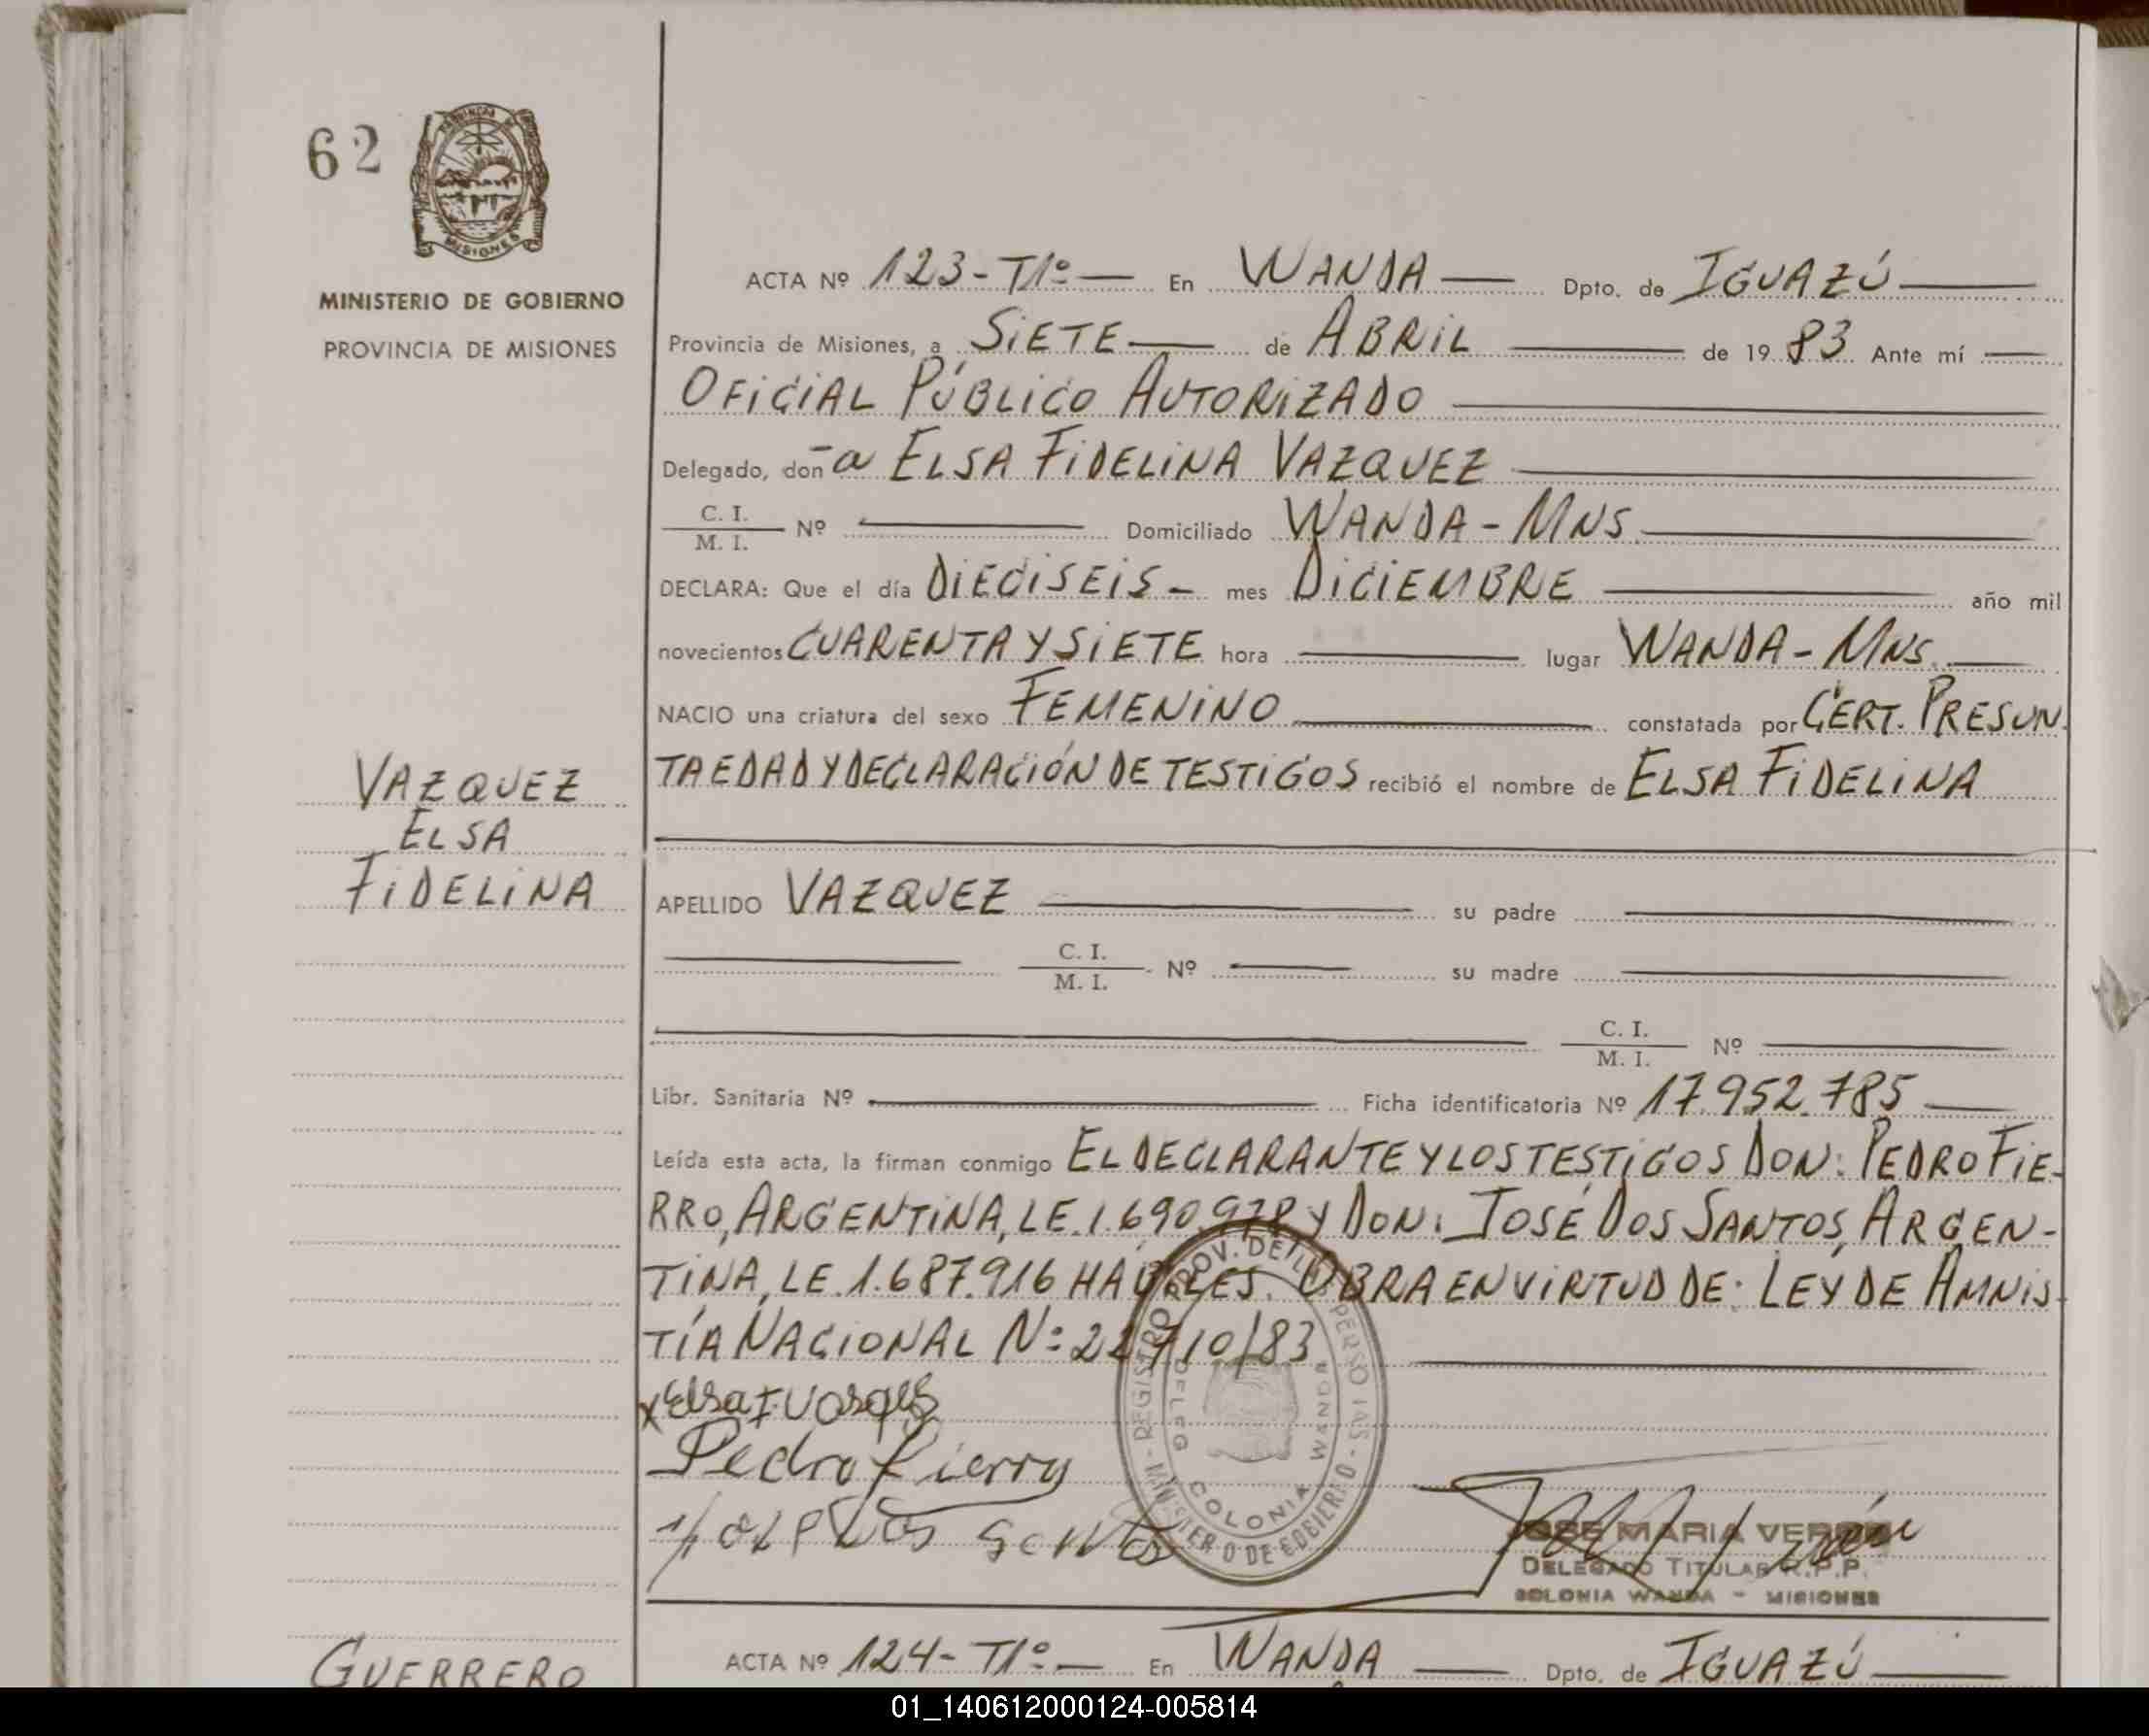 62
PROVINCIA DE
MISIONES
MINISTERIO DE GOBIERNO
PROVINCIA DE MISIONES
VAZQUEZ
ELSA
FIDELINA
ACTA Nº 123-T1º— En WANDA — Dpto. de IGUAZÚ —
Provincia de Misiones, a SIETE — de ABRIL — de 1983 Ante mí —
OFICIAL PÚBLICO AUTORIZADO —
Delegado, don-a ELSA FIDELINA VAZQUEZ —
C. I.
M. I. Nº — Domiciliado WANDA-MNS. —
DECLARA: Que el día DIECISEIS - mes DICIEMBRE — año mil
novecientos CUARENTA Y SIETE hora — lugar WANDA-MNS. —
NACIO una criatura del sexo FEMENINO — constatada por CERT. PRESUN
TA EDAD Y DECLARACIÓN DE TESTIGOS recibió el nombre de ELSA FIDELINA
APELLIDO VAZQUEZ — su padre —
— C. I.
M. I. Nº — su madre —
— C. I.
M. I. Nº —
Libr. Sanitaria Nº — Ficha identificatoria Nº 17.952.785 —
Leída esta acta, la firman conmigo EL DECLARANTE Y LOS TESTIGOS DON: PEDRO FIE-
RRO, ARGENTINA, LE. 1.690.978 Y DON: JOSÉ DOS SANTOS, ARGEN-
TINA, LE. 1.687.916 HÁBILES. OBRA EN VIRTUD DE: LEY DE AMNIS-
TÍA NACIONAL Nº: 22710/83 —
x Elsa F Vasques
Pedro fierro
REGISTRO PROV. DE LAS PERSONAS - MINISTERIO DE GOBIERNO -
DELEG COLONIA WANDA
JOSE MARIA VERON
DELEGADO TITULAR R.P.P.
COLONIA WANDA - MISIONES
GUERRERO
ACTA Nº 124-T1º— En WANDA — Dpto. de IGUAZÚ —
01_140612000124-005814